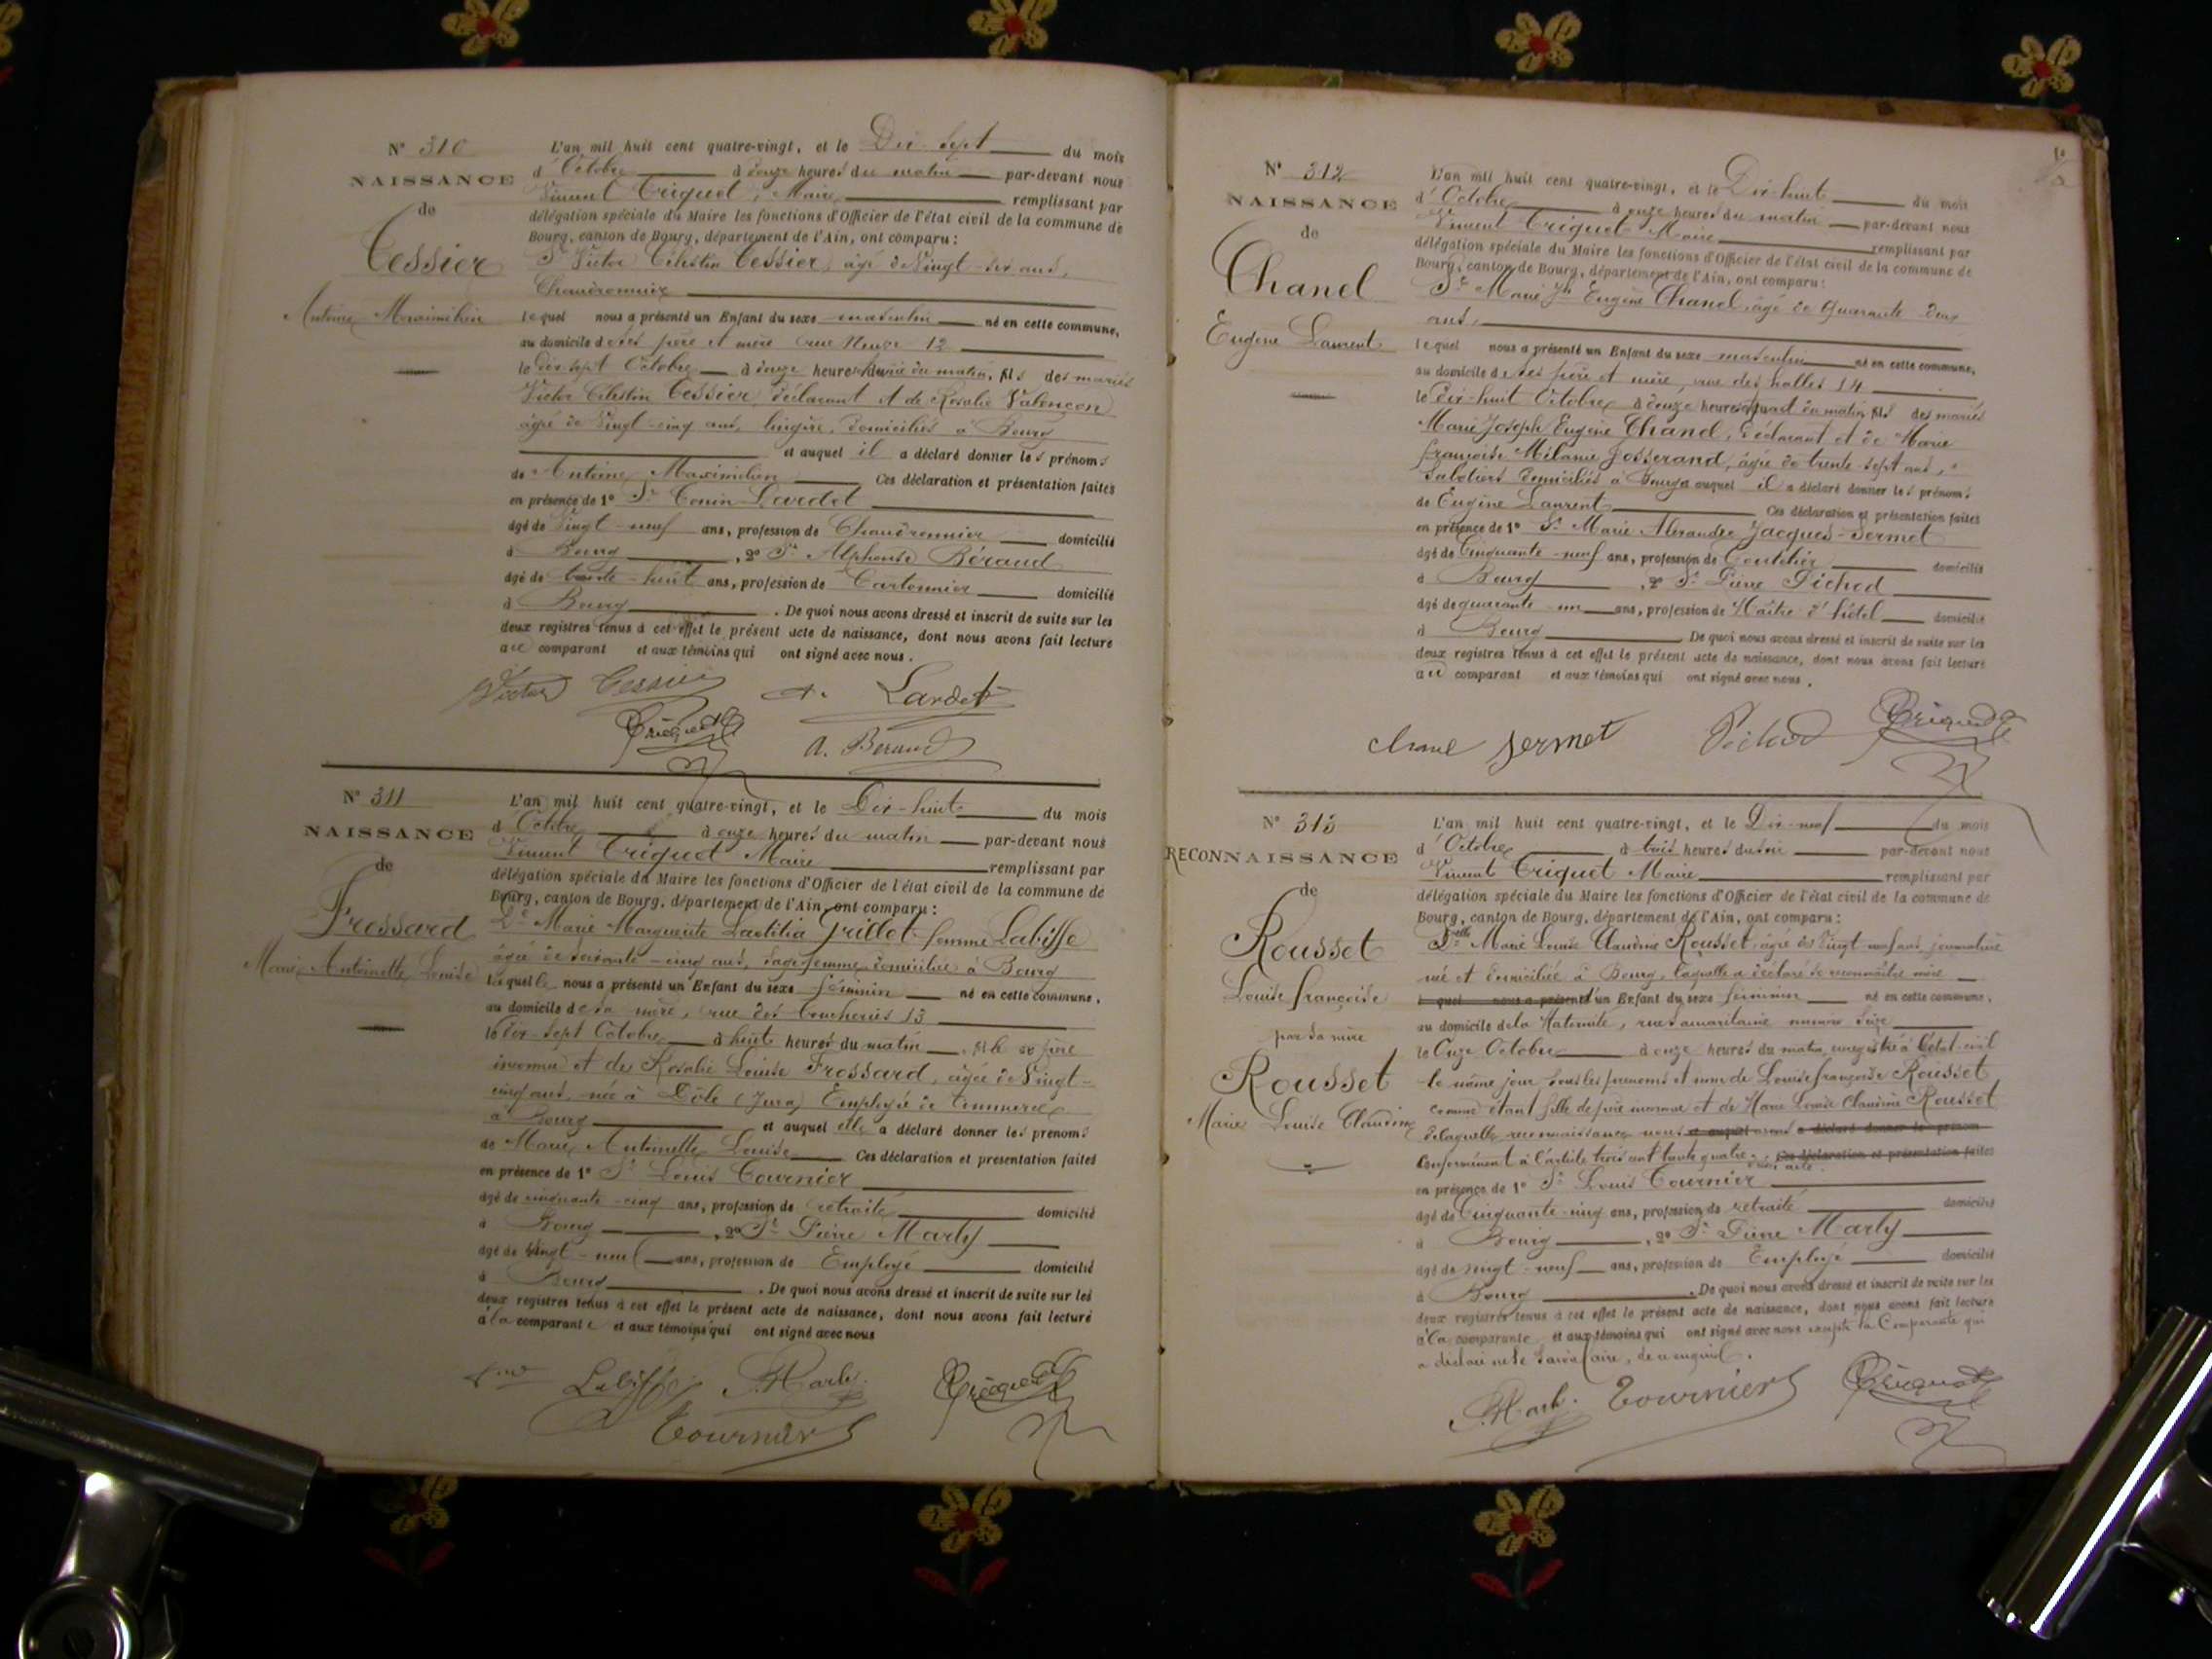 N° 310
NAISSANCE
de
Tessier
Antoine Maximilien
L'an mil huit cent quatre-vingt, et le Dix-sept du mois
d'Octobre à onze heures du matin par-devant nous
Vincent Triquet, Maire remplissant par
délégation spéciale du Maire les fonctions d'Officier de l'état civil de la commune de
Bourg, canton de Bourg, département de l'Ain, ont comparu :
Sr Victor Célestin Tessier, âgé de Vingt-six ans,
Chaudronnier
lequel nous a présenté un Enfant du sexe masculin né en cette commune,
au domicile de ses père et mère rue 12
le dix-sept Octobre à heures du matin, fils des mariés
Victor Célestin Tessier, déclarant et de Rosalie Valençon
âgée de Vingt-cinq ans, lingère, domiciliés à Bourg
et auquel il a déclaré donner les prénoms
de Antoine Maximilien Ces déclaration et présentation faites
en présence de 1° Sr Lardet
âgé de Vingt-neuf ans, profession de Chaudronnier domicilié
à Bourg, 2° Sr Alphonse Béraud
âgé de trente-huit ans, profession de Cartonnier domicilié
à Bourg. De quoi nous avons dressé et inscrit de suite sur les
deux registres tenus à cet effet le présent acte de naissance, dont nous avons fait lecture
au comparant et aux témoins qui ont signé avec nous.
Victor Tessier Lardet
Triquet A. Beraud
N° 311
NAISSANCE
de
Frossard
Marie Antoinette Louise
L'an mil huit cent quatre-vingt, et le Dix-huit du mois
d'Octobre à onze heures du matin par-devant nous
Vincent Triquet Maire remplissant par
délégation spéciale du Maire les fonctions d'Officier de l'état civil de la commune de
Bourg, canton de Bourg, département de l'Ain, ont comparu :
De Marie Marguerite Laetitia Grillet femme Labisse
âgée de soixante-cinq ans, sage-femme domiciliée à Bourg
laquelle nous a présenté un Enfant du sexe féminin né en cette commune,
au domicile de sa mère, rue des boucheries 13
le dix-sept Octobre à huit heures du matin, fille de père
inconnu et de Rosalie Louise Frossard, âgée de Vingt-
cinq ans, née à Dôle (Jura) Employée de Commerce
à Bourg et auquel elle a déclaré donner les prénoms
de Marie Antoinette Louise Ces déclaration et présentation faites
en présence de 1° Sr Louis Tournier
âgé de cinquante-cinq ans, profession de retraité domicilié
à Bourg, 2° Sr Pierre Marly
âgé de Vingt-neuf ans, profession de Employé domicilié
à Bourg. De quoi nous avons dressé et inscrit de suite sur les
deux registres tenus à cet effet le présent acte de naissance, dont nous avons fait lecture
à la comparante et aux témoins qui ont signé avec nous
Labisse P. Marly Triquet
Tournier
N° 312
NAISSANCE
de
Chanel
Eugène Laurent
L'an mil huit cent quatre-vingt, et le Dix-huit du mois
d'Octobre à onze heures du matin par-devant nous
Vincent Triquet Maire remplissant par
délégation spéciale du Maire les fonctions d'Officier de l'état civil de la commune de
Bourg, canton de Bourg, département de l'Ain, ont comparu :
Sr Marie Jh Eugène Chanel, âgé de quarante-deux
ans,
lequel nous a présenté un Enfant du sexe masculin né en cette commune,
au domicile de ses père et mère, rue des halles 14
le dix-huit Octobre à heures du matin, fils des mariés
Marie Joseph Eugène Chanel, déclarant et de Marie
françoise Mélanie Josserand, âgée de trente-sept ans,
Sabotiers domiciliés à Bourg auquel il a déclaré donner les prénoms
de Eugène Laurent Ces déclaration et présentation faites
en présence de 1° Sr Marie Alexandre Jacques-Sermet
âgé de Cinquante-neuf ans, profession de Coutelier domicilié
à Bourg, 2° Sr Pierre Pichod
âgé de quarante-un ans, profession de Maître d'hôtel domicilié
à Bourg De quoi nous avons dressé et inscrit de suite sur les
deux registres tenus à cet effet le présent acte de naissance, dont nous avons fait lecture
au comparant et aux témoins qui ont signé avec nous.
Sermet Pichod Triquet
N° 313
RECONNAISSANCE
de
Rousset
Louise françoise
par sa mère
Rousset
Marie Louise Claudine
L'an mil huit cent quatre-vingt, et le Dix-neuf du mois
d'Octobre à trois heures du soir par-devant nous
Vincent Triquet Maire remplissant par
délégation spéciale du Maire les fonctions d'Officier de l'état civil de la commune de
Bourg, canton de Bourg, département de l'Ain, ont comparu :
Delle Marie Louise Claudine Rousset, âgée de Vingt-neuf ans journalière
née et domiciliée à Bourg, laquelle a déclaré se reconnaître mère
lequel nous a présenté d'un Enfant du sexe féminin né en cette commune,
au domicile de la Maternité, rue samaritaine numéro seize
le Onze Octobre à onze heures du matin, enregistré à l'état-civil
le même jour sous les prénoms et nom de Louise françoise Rousset
comme étant fille de père inconnu et de Marie Louise Claudine Rousset
de laquelle reconnaissance nous et auquel avons a déclaré donner le prénom
conformément à l'article trois cent trente quatre. Ces déclaration et présentation faites
en présence de 1° Sr Louis Tournier
âgé de Cinquante-cinq ans, profession de retraité domicilié
à Bourg, 2° Sr Pierre Marly
âgé de vingt-neuf ans, profession de Employé domicilié
à Bourg. De quoi nous avons dressé et inscrit de suite sur les
deux registres tenus à cet effet le présent acte de naissance, dont nous avons fait lecture
à la comparante et aux témoins qui ont signé avec nous excepté la Comparante qui
a déclaré ne le savoir faire, de ce enquise.
P. Marly Tournier Triquet